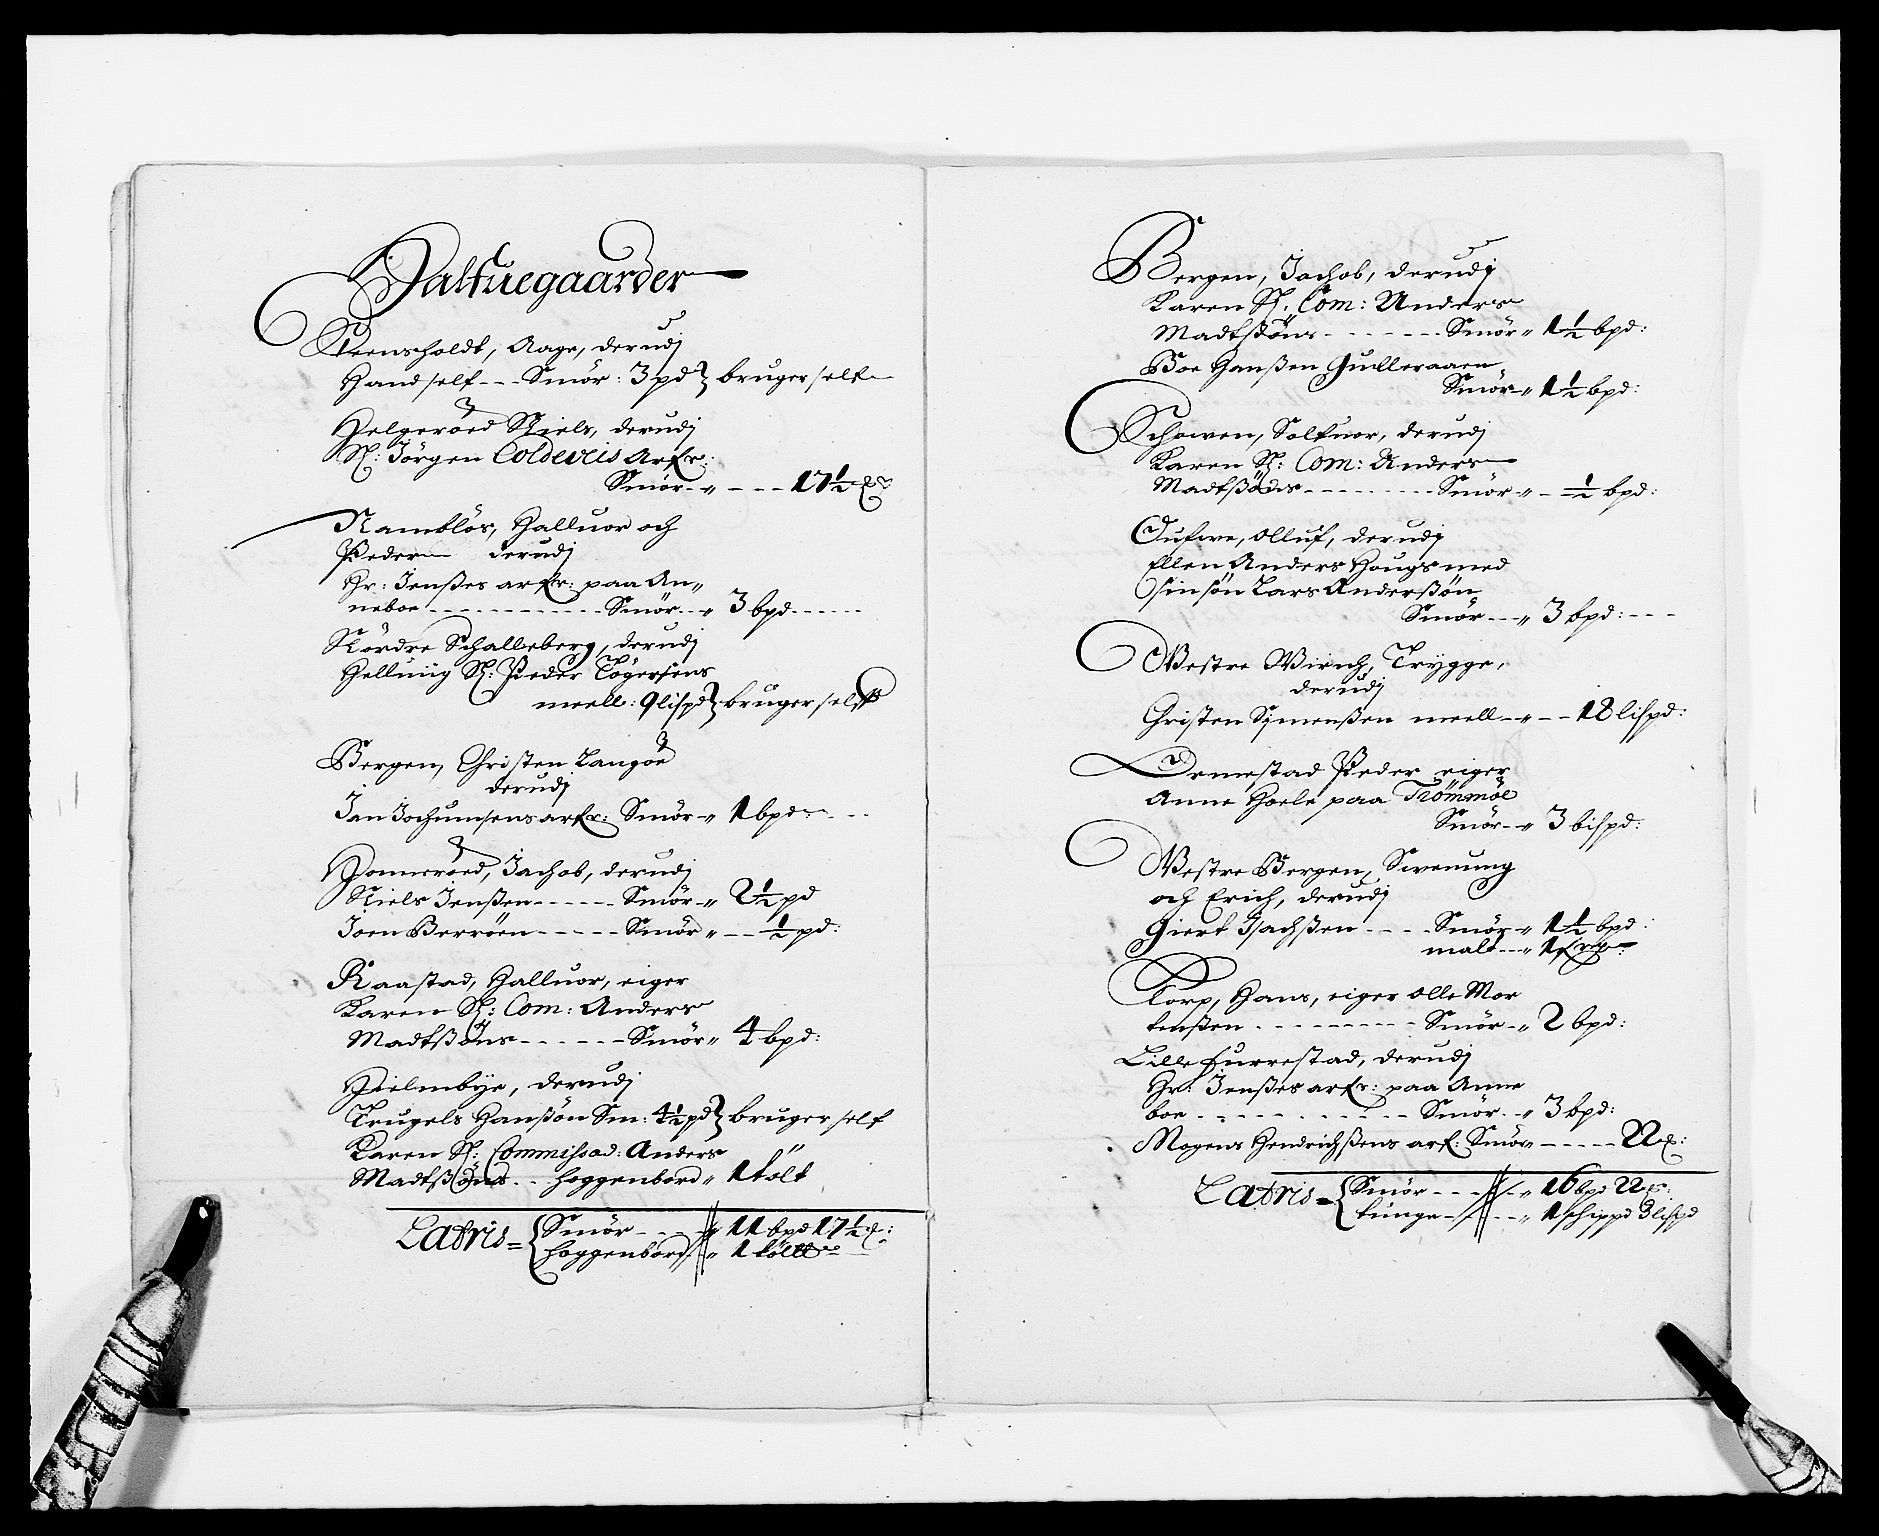 Halfuegaarder
Steensholdt, Aage, derudj
Hand self --- Smör: 3 pd } bruger self
Helgeröed Niels, derudj
Sl: Jörgen Coldeviis arfr:
Smör - " --- 17½
Namblös, Halluor och
Peder derudj
Hr: Jenßes arfr: paa An"
neboe --- Smör - " 3 bpd ---
Nördre Schalleberg, derudj
Helluiig Sl: Peder Tögersens
meell: 9 lispd } bruger self
Bergen, Christen Langöe
derudj
Jan Jochumsens arfr: Smör - " 1 bpd: ---
Honneröed, Jachob, derudj
Niels Jenßen --- Smör - " 2½ pd
Joen Berröen --- Smör " -- ½ pd:
Raastad, Halluor, eiger
Karen Sl: Com: Anders
Madtßöns --- Smör " 4 bpd:
Hielmbye, derudj
Trugels Hanßön Sm: 4½ pd } bruger self
Karen Sl: Commissad: Anders
Madtßöns -- hoggenbord " 1 tölt
Latris = { Smör --- " 11 bpd 17½
hoggenbord " 1 tölt
Bergen, Jachob, derudj
Karen Sl: Com: Anders
Madtßöns --- Smör " 1½ bpd:
Boe Hanßen Gulleraaen
Smör - " 1½ bpd:
Schowen, Solfuor, derudj
Karen Sl: Com: Anders
Madtßöns --- Smör " - ½ bpd:
Oufwe, Olluf, derudj
Ellen Anders Hougs med
sin sön Lars Anderßön
Smör -- " 3 bpd: ---
Westre Wirich, Trygge,
derudj
Christen Simenßen meell - " -- 18 lispd:
Ormestad Peder eiger
Anne Hoele paa Trömmöe
Smör - " 3 bispd:
Westre Bergen, Swenung
och Erich, derudj
Giert Isachßen --- Smör - " 1½ bpd:
malt -- "
Torp, Hans, eiger Olle Mor
tenßen --- Smör - " 2 bpd:
Lille furrestad, derudj
Hr: Jenßes arfr: paa Anne
boe --- Smör - " 3 bpd:
Mogens Hendrichßens arf: Smör --- 22
Latris = { Smör --- " 16 bpd 22
tunge --- " 1 schippd 3 lispd